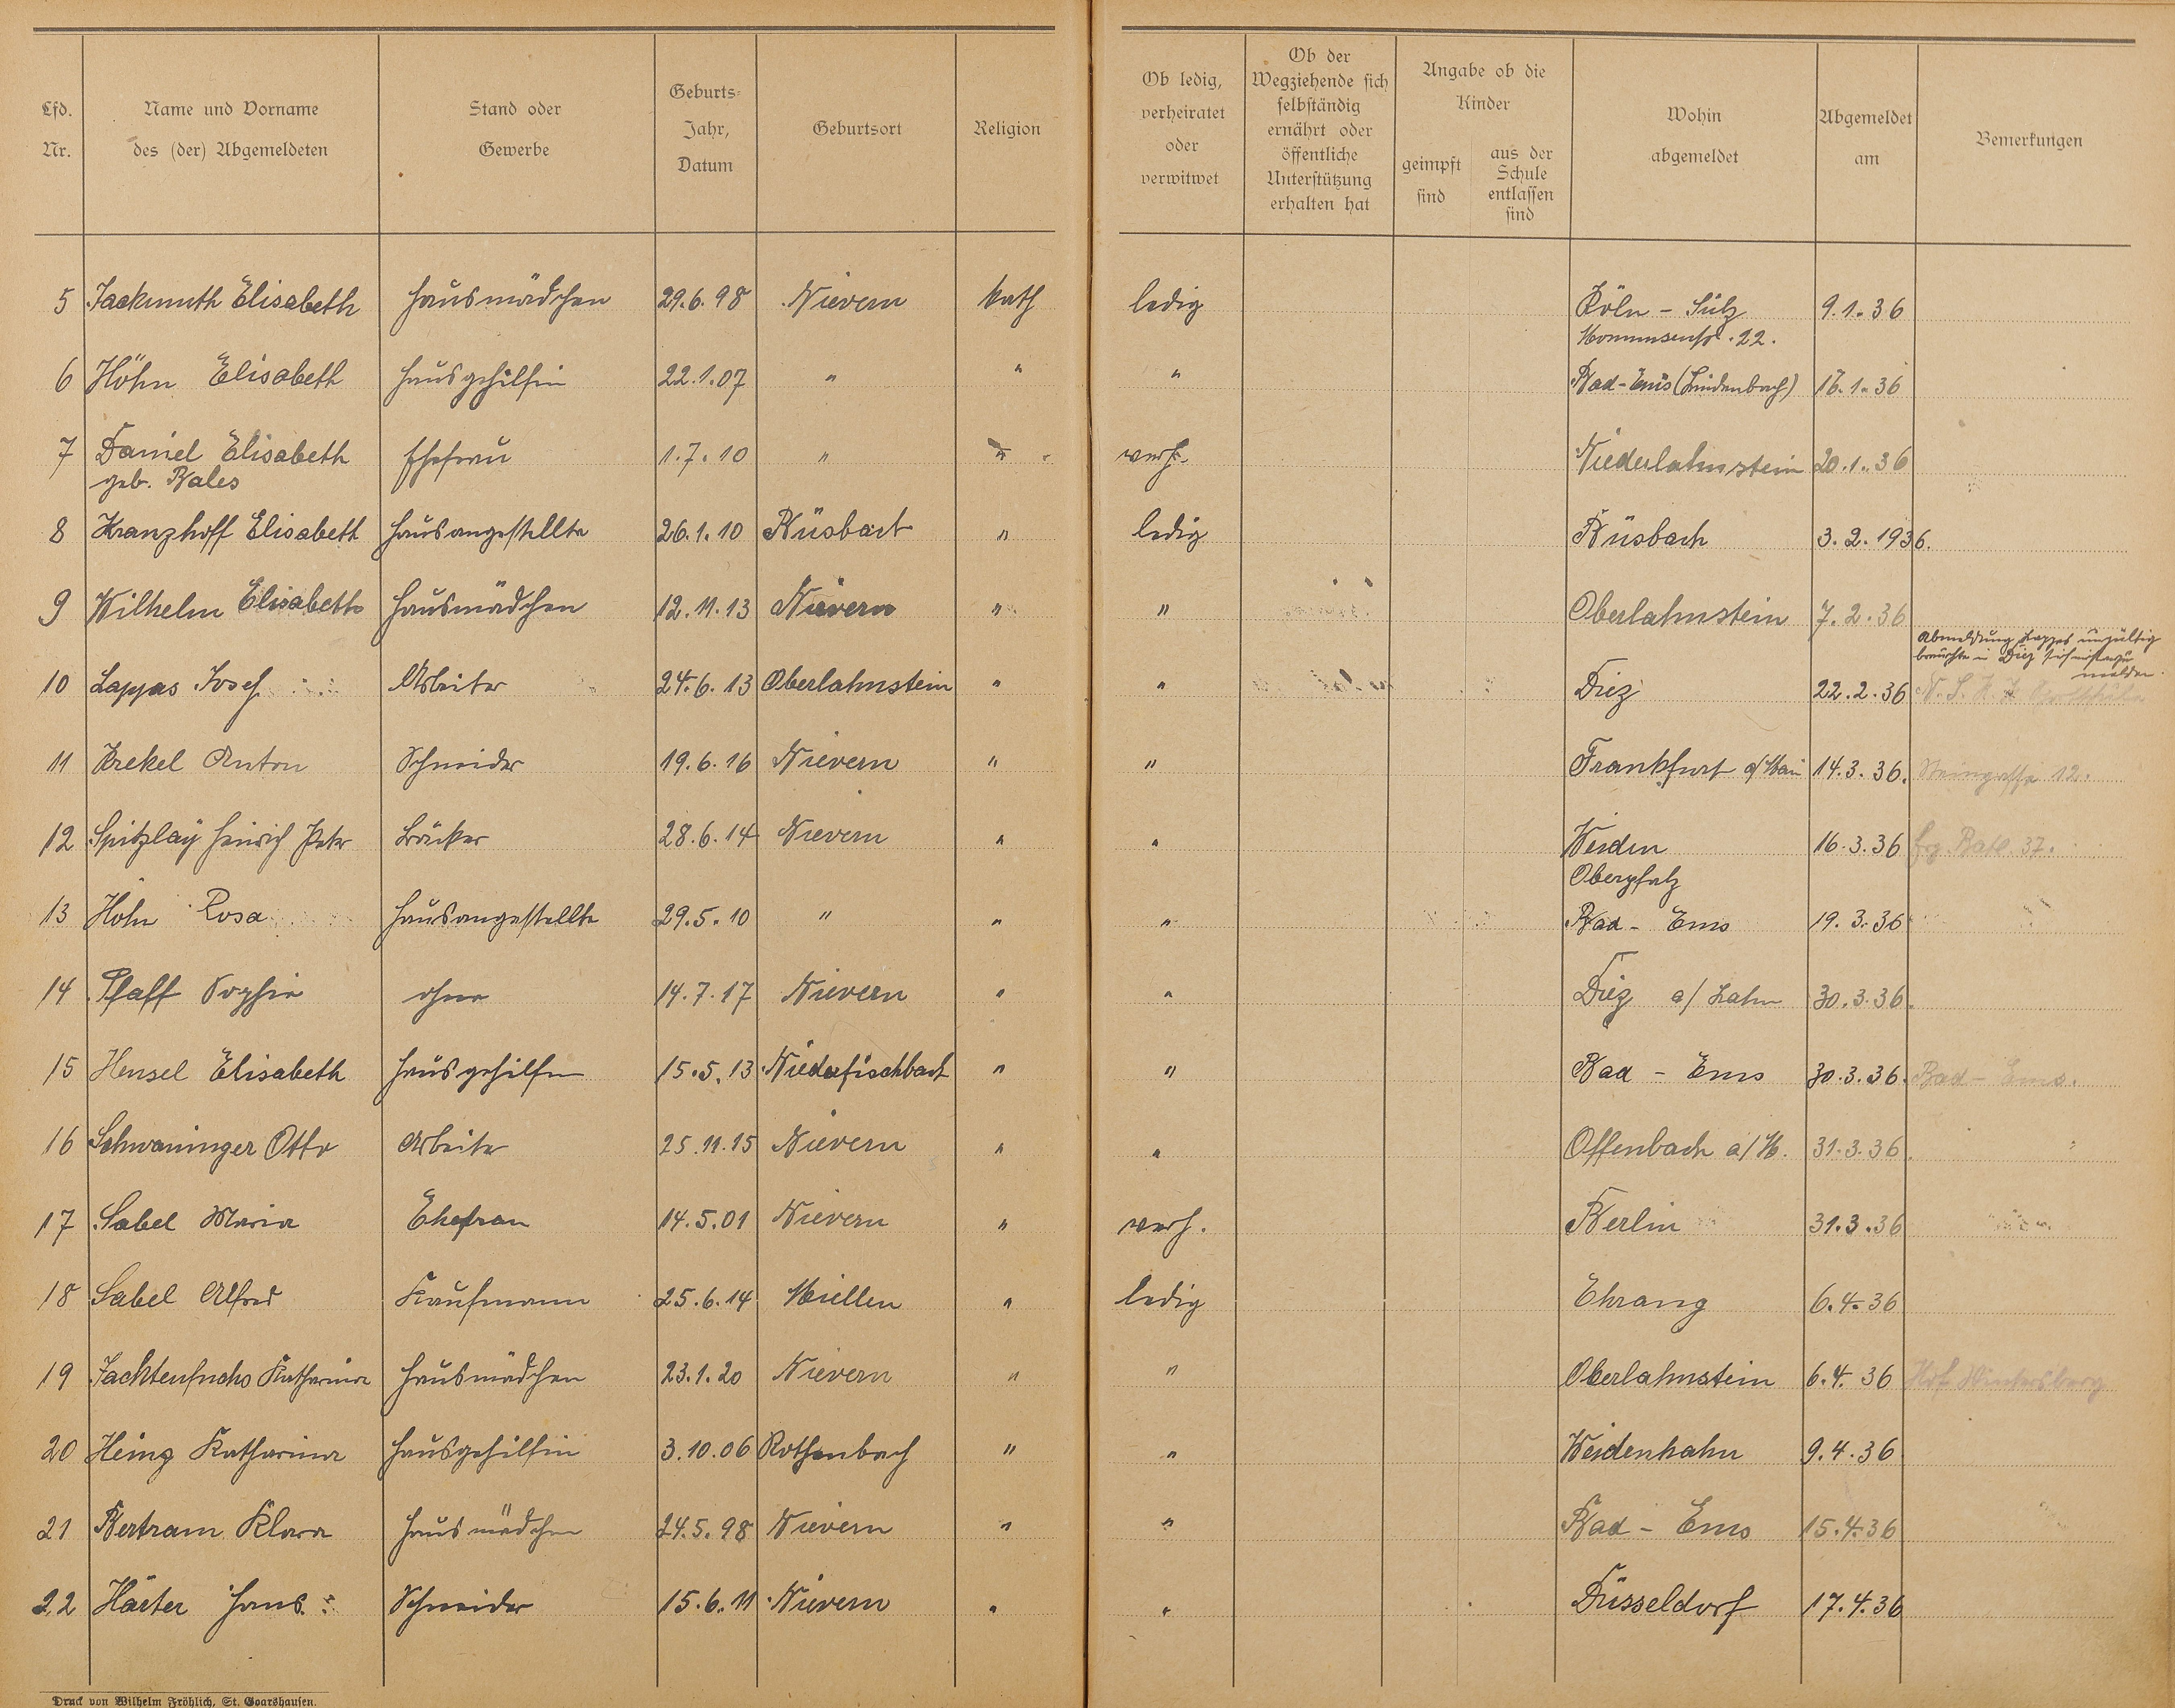 Lfd. Nr.
Name und Vorname des (der) Abgemeldeten
Stand oder Gewerbe
Geburts- Jahr, Datum
Geburtsort
Religion
Ob ledig, verheiratet oder verwitwet
Ob der Wegziehende sich selbständig ernährt oder öffentliche Unterstützung erhalten hat
Angabe ob die Kinder
geimpft sind
aus der Schule entlassen sind
Wohin abgemeldet
Abgemeldet am
Bemerkungen
5 Jackmuth Elisabeth Hausmädchen 29.6.98 Nievern kath ledig Köln - Sülz 9.1.36
22.
6 Höhn Elisabeth Hausgehilfin 22.1.07 " " " Bad-Ems (Lindenbach) 16.1.36
7 Daniel Elisabeth Ehefrau 1.7.10 " " verh. Niederlahnstein 20.1.36
geb. Bales
8 Kranzhoff Elisabeth Hausangestellte 26.1.10 " ledig 3.2.1936.
9 Wilhelm Elisabeth Hausmädchen 12.11.13 Nievern " " Oberlahnstein 7.2.36
Abmeldung Lappas ungültig
brauchte in Diez sich nicht
melden.
10 Lappas Josef Arbeiter 24.6.13 Oberlahnstein " " Diez 22.2.36
11 Krekel Anton Schneider 19.6.16 Nievern " " Frankfurt a/Main 14.3.36. Steingasse 12.
12 Spitzlay Heinrich Peter Bäcker 28.6.14 Nievern " " Weiden 16.3.36 37.
Oberpfalz
13 Höhn Rosa Hausangestellte 29.5.10 " " " Bad - Ems 19.3.36
14 Pfaff Sophie ohne 14.7.17 Nievern " " Diez a/Lahn 30.3.36.
15 Hensel Elisabeth Hausgehilfin 15.5.13 Niederfischbach " " Bad - Ems 30.3.36. Bad - Ems.
16 Schwaninger Otto Arbeiter 25.11.15 Nievern " " Offenbach a/M. 31.3.36.
17 Sabel Maria Ehefrau 14.5.01 Nievern " verh. Berlin 31.3.36
18 Sabel Alfred Kaufmann 25.6.14 Miellen " ledig Ehrang 6.4.36
19 Jachtenfuchs Katharina Hausmädchen 23.1.20 Nievern " " Oberlahnstein 6.4.36 Hof Wintersberg
20 Heinz Katharina Hausgehilfin 3.10.06 Rothenbach " " Weidenhahn 9.4.36
21 Bertram Klara Hausmädchen 24.5.98 Nievern " " Bad - Ems 15.4.36
22 Härter Hans Schneider 15.6.11 Nievern " " Düsseldorf 17.4.36
Druck von Wilhelm Fröhlich, St. Goarshausen.